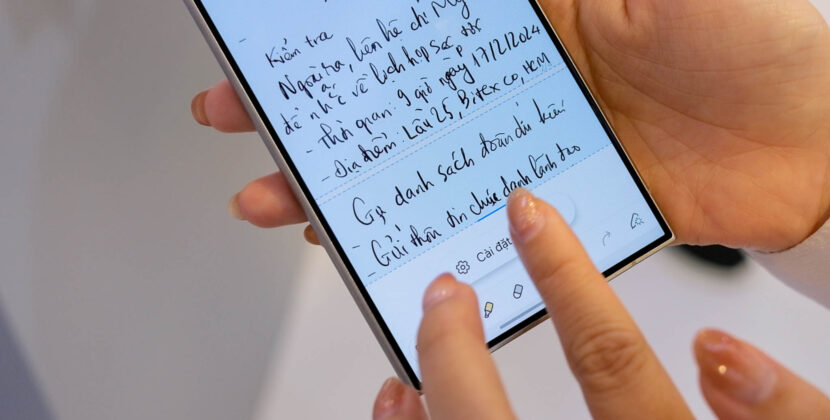 -
Kiểm tra
Ngoài ra, liên hệ chị Mỹ
để nhắc về lịch họp sắp tới
- Thời gian: 9 giờ ngày 17/2/2024
- Địa điểm: Lầu 25, Bitexco, HCM
danh sách đoàn dự kiến
- Gửi thông tin chức danh lãnh đạo
Cài đặt